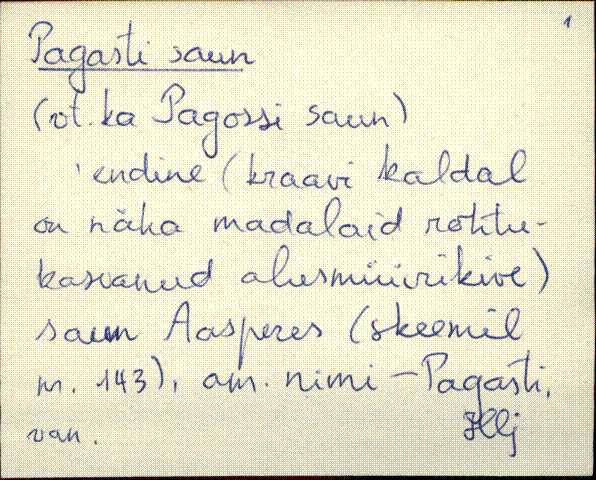 1
Pagasti saun
(vt. ka Pagossi saun)
'endine (kraavi kaldal
on näha madalaid rohtu-
kasvanud alusmüürikive)
saun Aasperes (skeemil
nr. 143), am. nimi – Pagasti,
van. Hlj